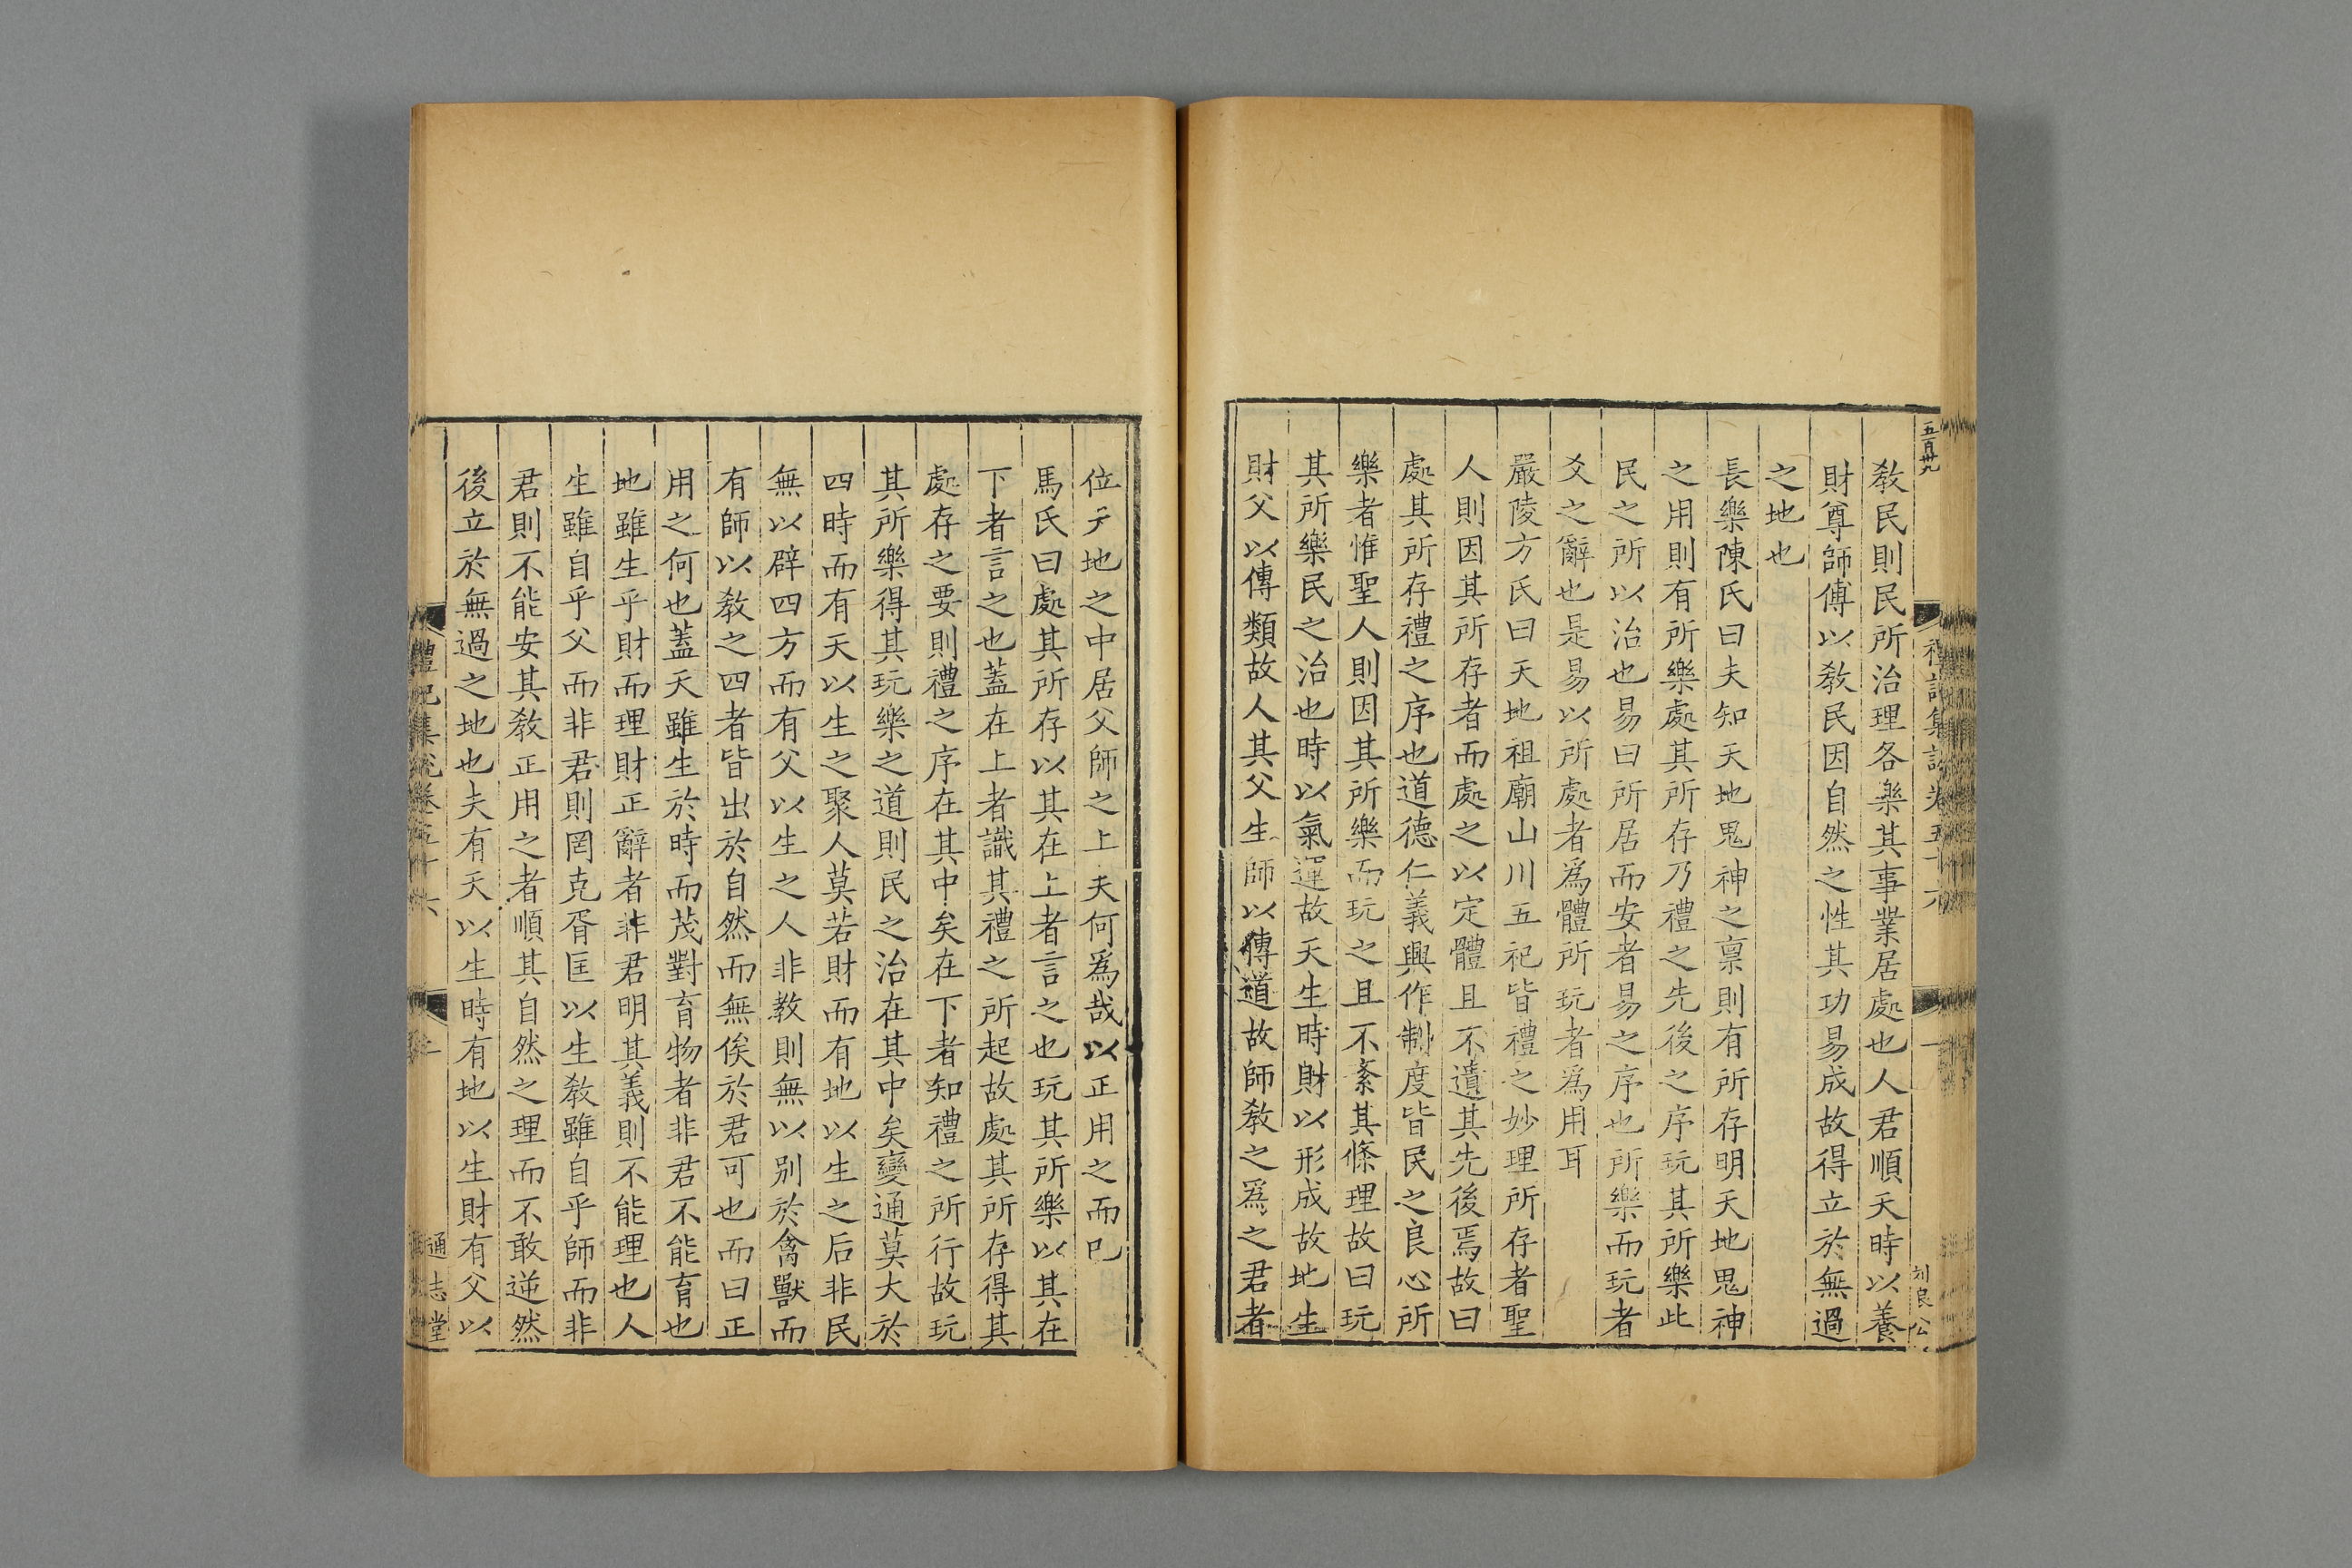 五百卅九
禮記集說卷五十六
一
刘良公
敎民則民所治理各樂其事業居處也人君順天時以養
財尊師傅以敎民因自然之性其功易成故得立於無過
之地也
長樂陳氏曰夫知天地鬼神之稟則有所存明天地鬼神
之用則有所樂處其所存乃禮之先後之序玩其所樂此
民之所以治也易曰所居而安者易之序也所樂而玩者
爻之辭也是易以所處者爲體所玩者爲用耳
嚴陵方氏曰天地祖廟山川五祀皆禮之妙理所存者聖
人則因其所存者而處之以定體且不遺其先後焉故曰
處其所存禮之序也道德仁義興作制度皆民之良心所
樂者惟聖人則因其所樂而玩之且不紊其條理故曰玩
其所樂民之治也時以氣運故天生時財以形成故地生
財父以傳類故人其父生師以傳道故師敎之爲之君者
位于地之中居父師之上夫何爲哉以正用之而已
馬氏曰處其所存以其在上者言之也玩其所樂以其在
下者言之也蓋在上者識其禮之所起故處其所存得其
處存之要則禮之序在其中矣在下者知禮之所行故玩
其所樂得其玩樂之道則民之治在其中矣變通莫大於
四時而有天以生之聚人莫若財而有地以生之后非民
無以辟四方而有父以生之人非教則無以別於禽獸而
有師以敎之四者皆出於自然而無俟於君可也而曰正
用之何也蓋天雖生於時而茂對育物者非君不能育也
地雖生乎財而理財正辭者非君明其義則不能理也人
生雖自乎父而非君則罔克胥匡以生敎雖自乎師而非
君則不能安其敎正用之者順其自然之理而不敢逆然
後立於無過之地也夫有天以生時有地以生財有父以
禮記集說卷五十六
二
通志堂